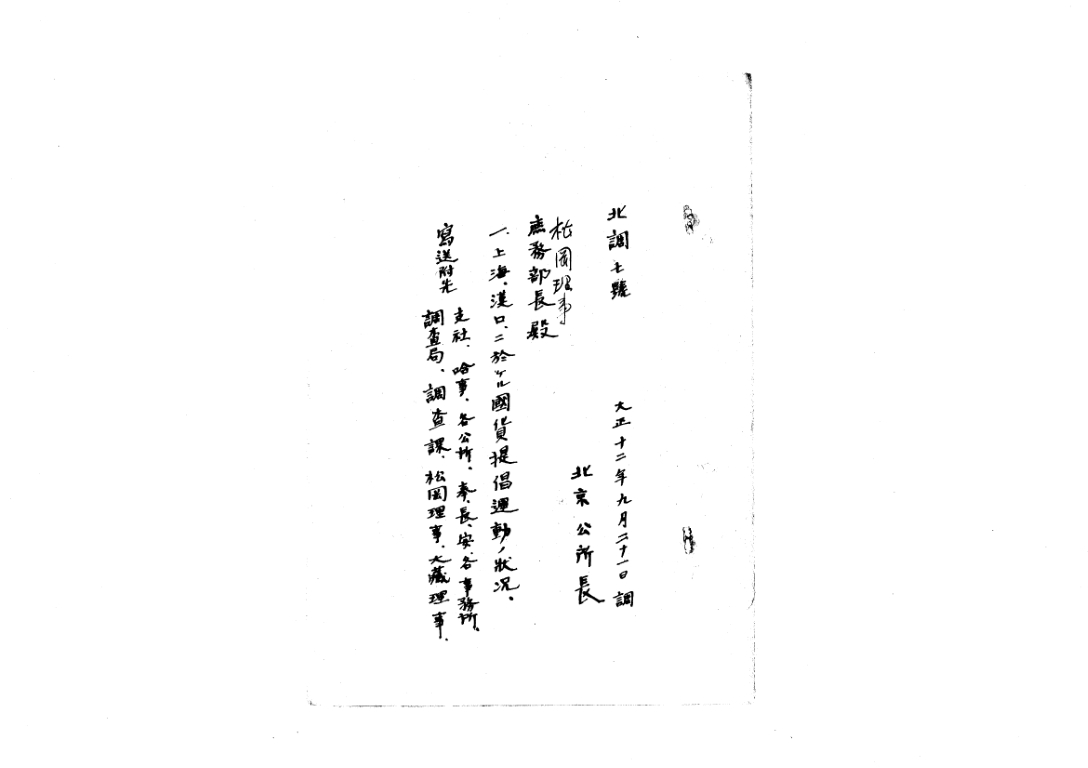 北調七號
大正十二年九月二十一日調
北京公所長
松岡理事
庶務部長殿
一、上海、漢口、ニ於ケル國貨提倡運動ノ狀况、
寫送附先
支社、哈事、各公所、奉、長、安、各事務所、
調査局、調査課、松岡理事、大藏理事、